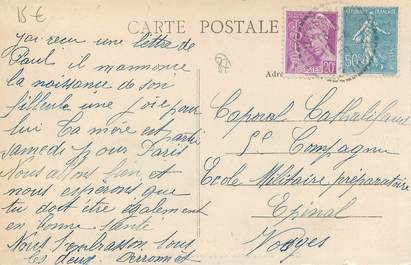 15 €
CARTE POSTALE
J'ai reçu une lettre de
Paul il m'annonce
la naissance de son
filleule une joie pour
lui Ta mère est parti
samedi pour Paris
Nous allons bien et
nous esperons que
tu doit être également
en bonne santé
Nous t'embrasson tous
les deux
87
Adre
20c
50c
RÉPUBLIQUE FRANÇAISE
Caporal
5e Compagnie
Ecole Militaire préparatoire
Epinal
Vosges